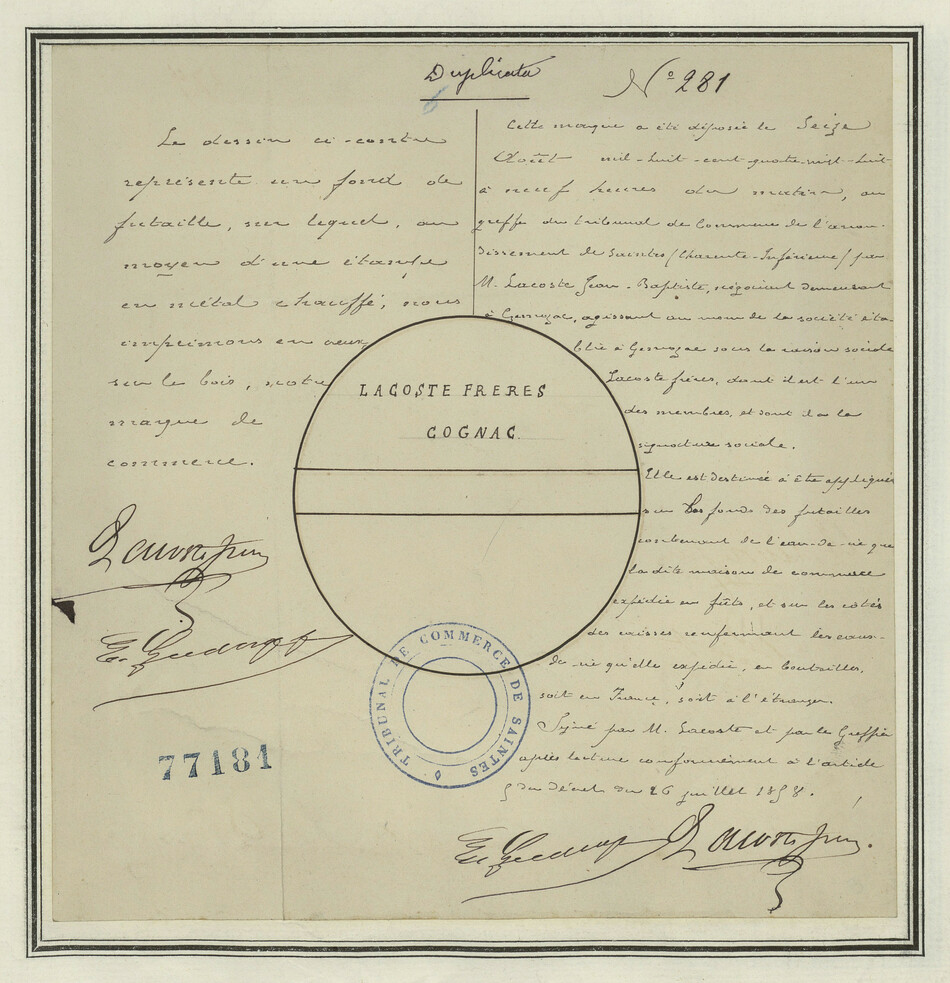 Duplicata
N° 281
Le dessin ci-contre
représente un fond de
futaille, sur lequel, au
moyen d'une étampe
en métal chauffé, nous
imprimons en creux
sur le bois, notre
marque de
commerce.
Lacoste frères
77181
LACOSTE FRERES
COGNAC.
TRIBUNAL DE COMMERCE DE SAINTES
Cette marque a été déposée le Seize
Août mil-huit-cent-quatre-vingt-huit
à neuf heures du matin, au
greffe du tribunal de Commerce de l'arron-
dissement de Saintes (Charente-Inférieure) par
M. Lacoste Jean-Baptiste, négociant demeurant
à Gemozac, agissant au nom de la société éta-
blie à Gemozac sous la raison sociale
Lacoste frères, dont il est l'un
des membres, et dont il a la
signature sociale.
Elle est destinée à être appliquée
sur les fonds des futailles
contenant de l'eau-de-vie que
la dite maison de commerce
expédie en fûts, et sur les côtés
des caisses renfermant les eaux-
de-vie qu'elle expédie, en bouteilles,
soit en France, soit à l'étranger.
Signé par M. Lacoste et par le Greffier
après lecture conformément à l'article
5 du décret du 26 juillet 1858.
Lacoste frères.